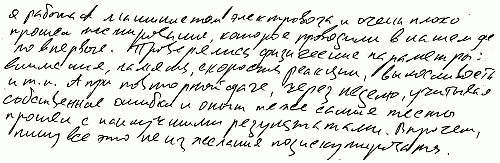 я работал машинистом электровоза, и очень плохо
прошел тестирование, которое проводили в нашем де
по впервые. Проверялись физические параметры:
внимания, память, скорость реакции, выносливость
и т.п. А при повторной сдаче, через неделю, учитывая
собственные ошибки и опыт те же самые тесты
прошел с наилучшими результатами. Впрочем,
пишу все это не из желания подискутировать.